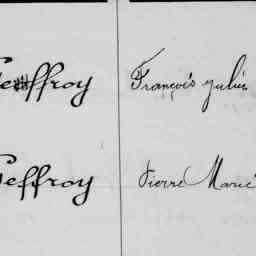 Geoffroy François Julien
Geffroy Pierre Marie